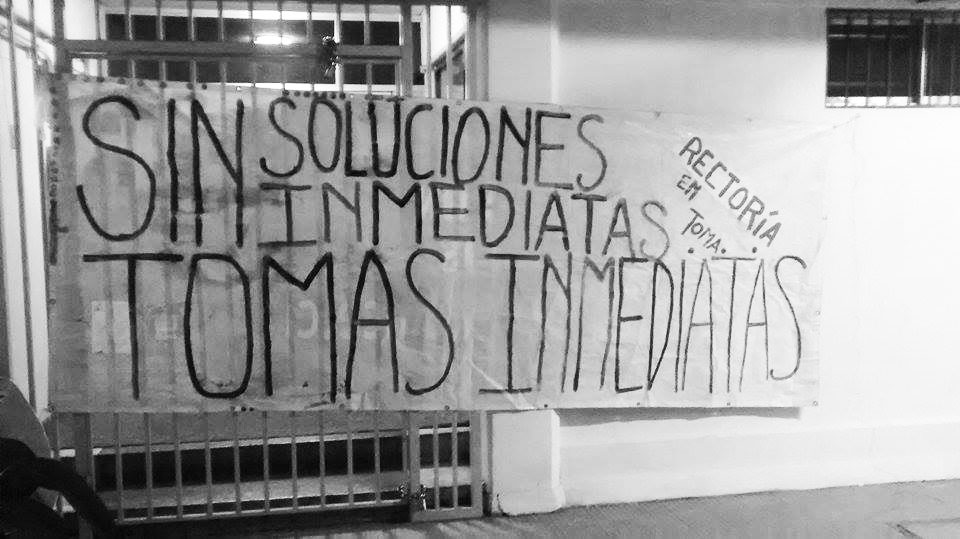 SIN SOLUCIONES
INMEDIATAS
TOMAS INMEDIATAS
RECTORÍA
EM
TOMA.